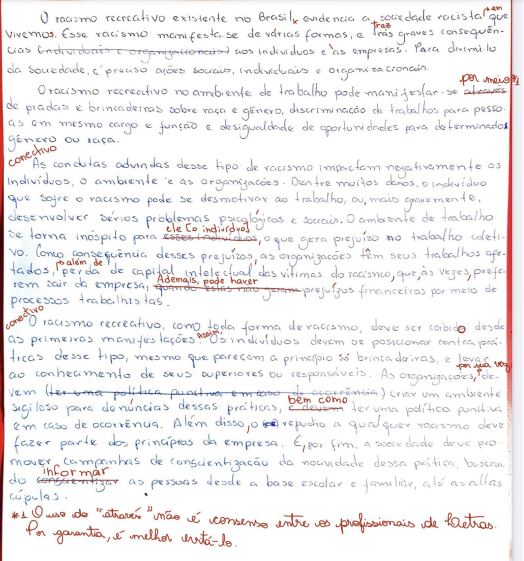 O racismo recreativo existente no Brasil, evidencia a sociedade racista em que
vivemos. Esse racismo manifesta-se de várias formas, e traz trás graves consequên-
cias (individuais e organizacionais) aos indivíduos e às empresas. Para diminuí-lo
da sociedade, é preciso ações sociais, individuais e organizacionais.
O racismo recreativo no ambiente de trabalho pode manifestar-se através por meio *1
de piadas e brincadeiras sobre raça e gênero, discriminação de trabalhos para pesso-
as em mesmo cargo e função e desigualdade de oportunidades para determinado
gênero ou raça.
conectivo
As condutas advindas desse tipo de racismo impactam negativamente os
indivíduos, o ambiente e as organizações. Dentre muitos danos, o indivíduo
que sofre o racismo pode se desmotivar ao trabalho, ou, mais gravemente,
desenvolver sérios problemas psicológicos e sociais. O ambiente de trabalho
se torna inóspito para esses indivíduos ele [o indivíduo], o que gera prejuízo no trabalho coleti-
vo. Como consequência desses prejuízos, as organizações têm seus trabalhos afe-
tados, além de perda de capital intelectual das vítimas do racismo, que, às vezes, prefe-
rem sair da empresa, quando estas não geram Ademais, pode haver prejuízos financeiros por meio de
processos trabalhistas.
conectivo
O racismo recreativo, como toda forma de racismo, deve ser coibido desde
as primeiras manifestações. Assim, Os indivíduos devem se posicionar contra prá-
ticas desse tipo, mesmo que pareçam a princípio só brincadeiras, e levar
ao conhecimento de seus superiores ou responsáveis. As organizações, por sua vez, de-
vem (ter uma política punitiva em caso de ocorrência) criar um ambiente
sigiloso para denúncias dessas práticas, e devem bem como ter uma política punitiva
em caso de ocorrência. Além disso, o repudho a qualquer racismo deve
fazer parte dos princípios da empresa. E, por fim, a sociedade deve pro-
mover campanhas de conscientização da nocividade dessa prática, buscan-
do conscientizar informar as pessoas desde a base escolar e familiar, até as altas
cúpulas.
*1 O uso do "através" não é consenso entre os profissionais de Letras.
Por garantia, é melhor evitá-lo.